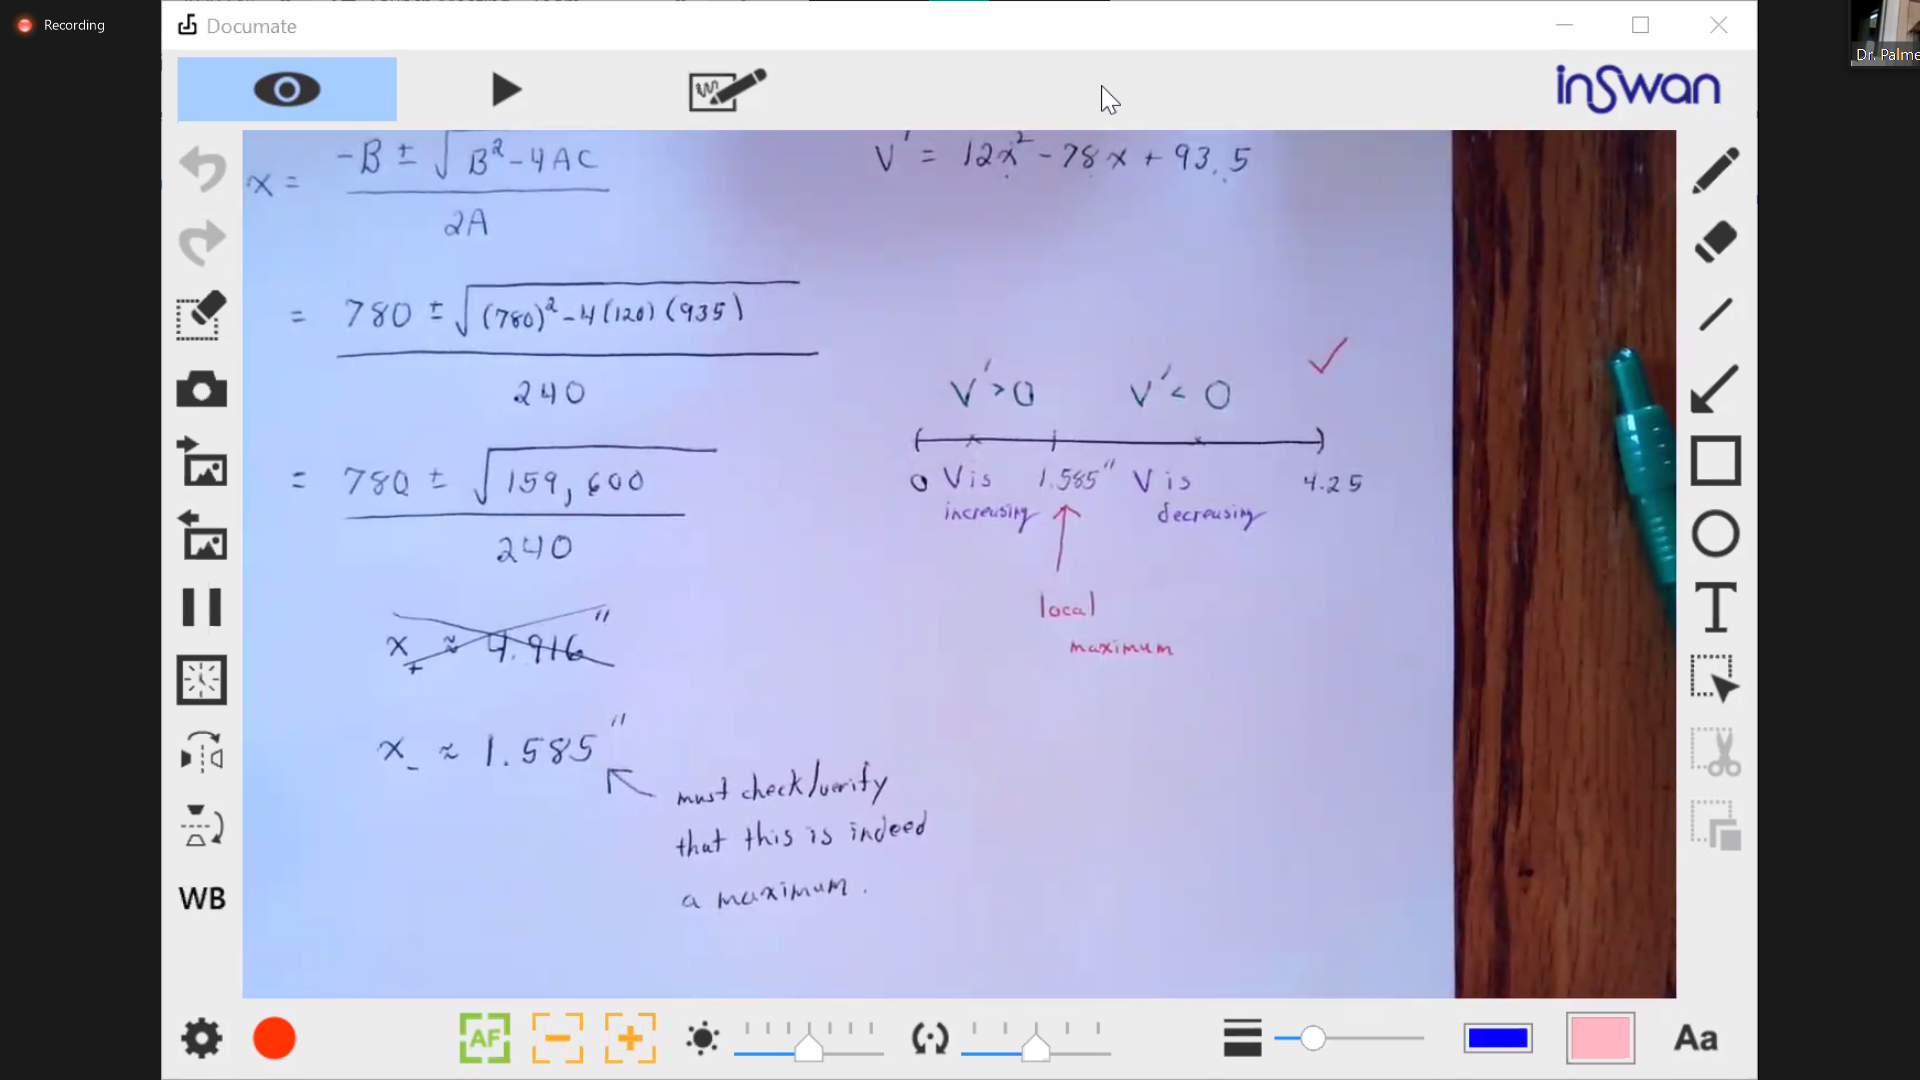 Recording
Documate
Dr. Palme
inSwan
x = -B ± √B² - 4AC
2A
= 780 ± √(780)² - 4(120)(935)
240
= 780 ± √159,600
240
x₊ ≈ 4.916"
x₋ ≈ 1.585"
must check/verify
that this is indeed
a maximum.
V' = 12x² - 78x + 93.5
V' > 0 V' < 0 ✓
0 V is 1.585" V is 4.25
increasing decreasing
local
maximum
WB
AF
Aa
T